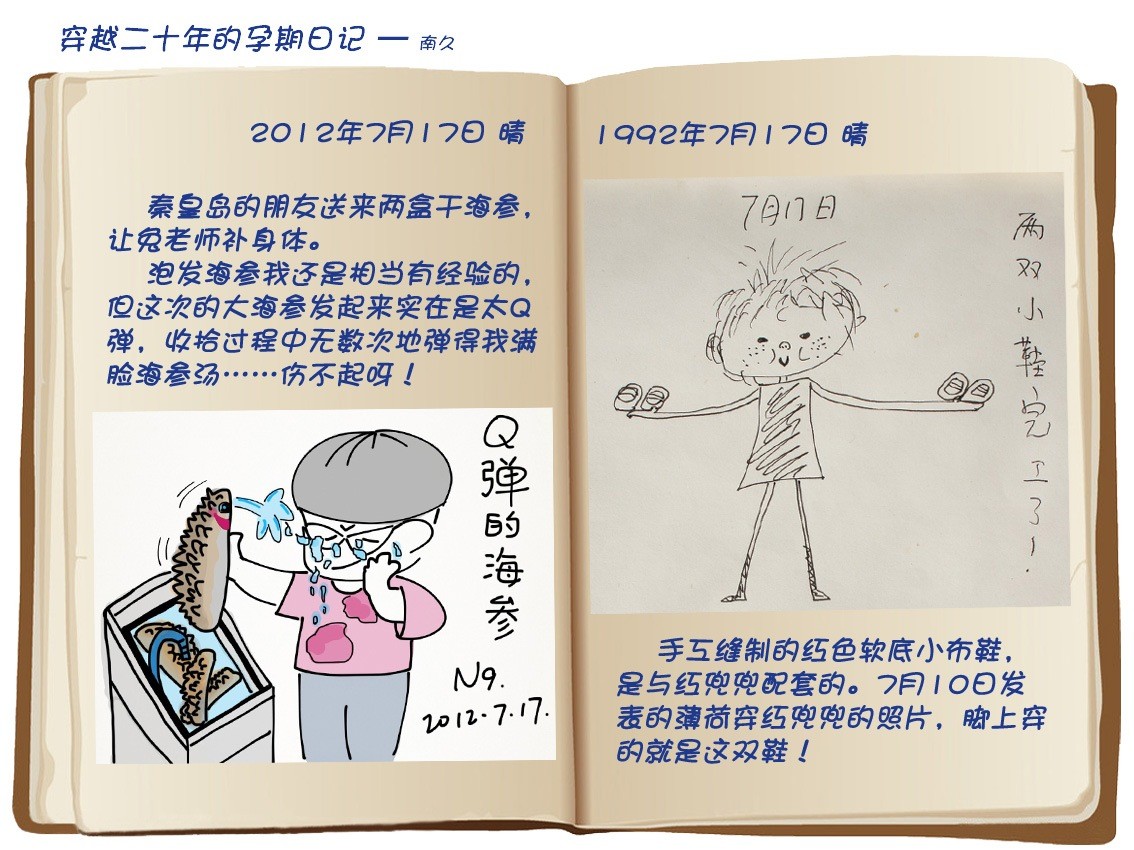 穿越二十年的孕期日记 — 南久
2012年7月17日 晴
秦皇岛的朋友送来两盒干海参，
让兔老师补身体。
泡发海参我还是相当有经验的，
但这次的大海参发起来实在是太Q
弹，收拾过程中无数次地弹得我满
脸海参汤……伤不起呀！
Q弹的海参
N9.
2012.7.17.
1992年7月17日 晴
7月17日
两双小鞋完工了！
手工缝制的红色软底小布鞋，
是与红兜兜配套的。7月10日发
表的薄荷穿红兜兜的照片，脚上穿
的就是这双鞋！